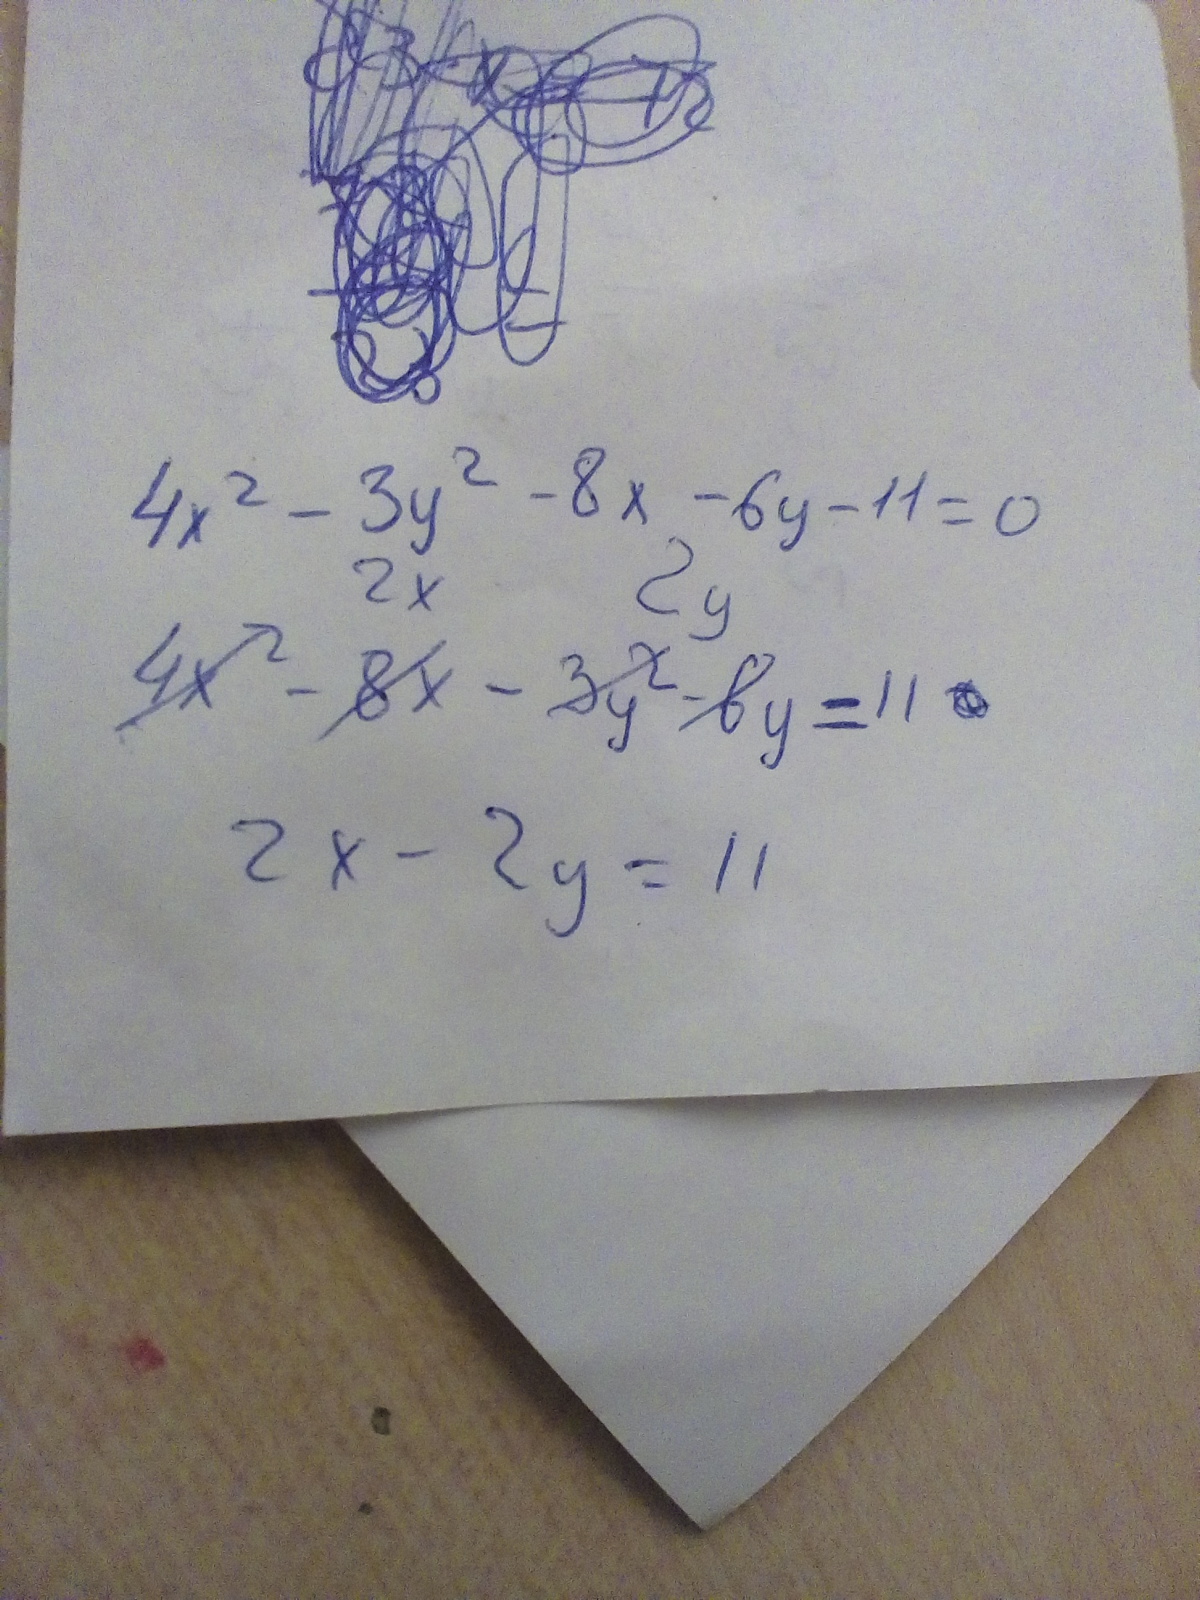 4x² - 3y² - 8x - 6y - 11 = 0
2x 2y
4x² - 8x - 3y² - 6y = 11
2x - 2y = 11